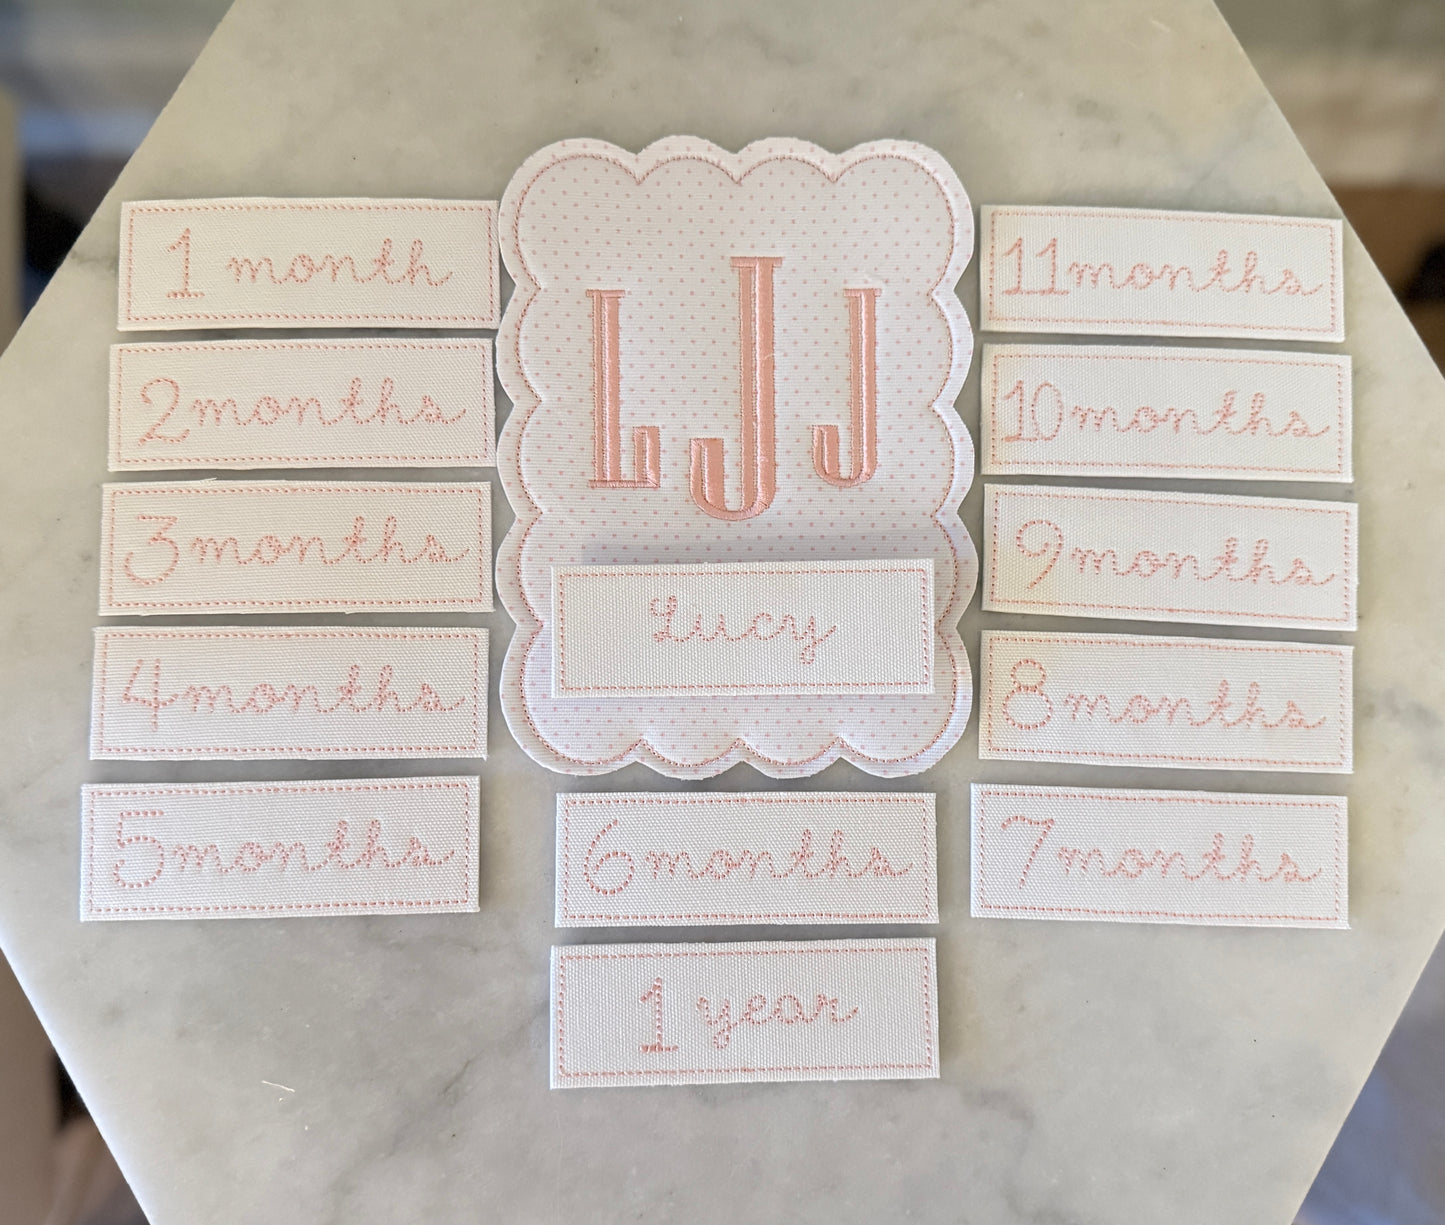 1 month
2 months
3 months
4 months
5 months
LJJ
Lucy
6 months
1 year
11 months
10 months
9 months
8 months
7 months